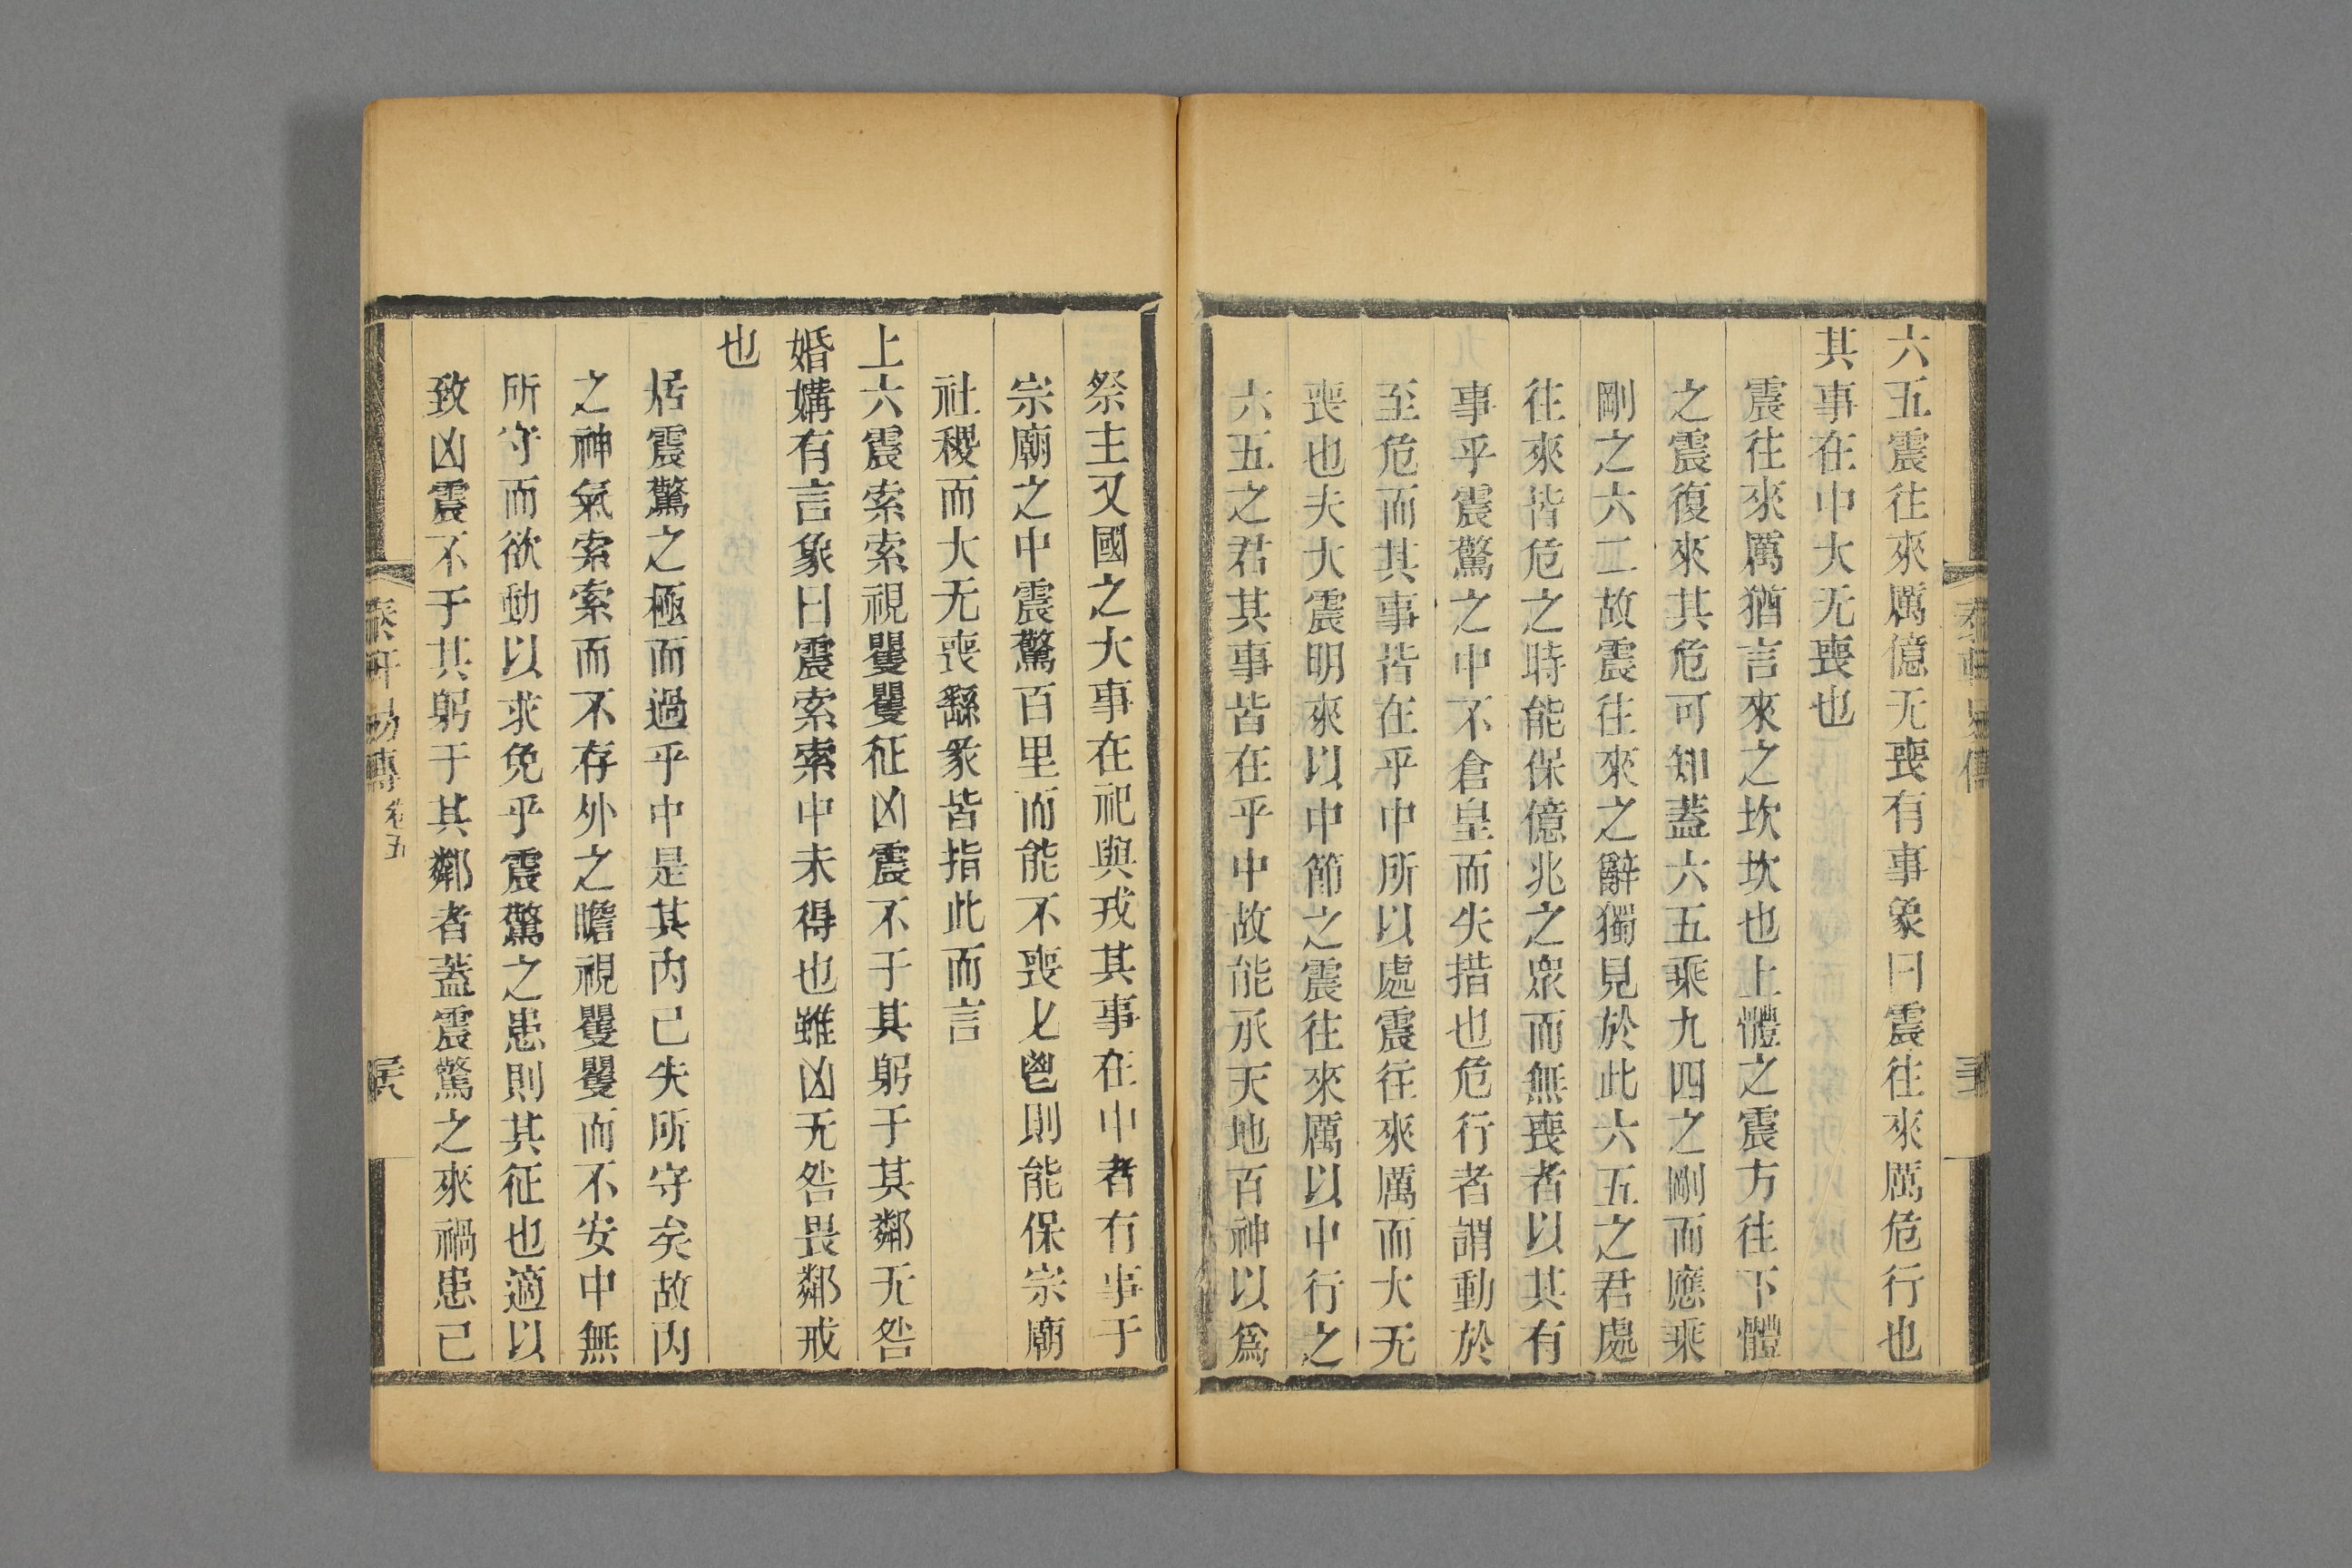 六五震往來厲億无喪有事象曰震往來厲危行也
其事在中大无喪也
震往來厲猶言來之坎坎也上體之震方往下體
之震復來其危可知蓋六五乘九四之剛而應乘
剛之六二故震往來之辭獨見於此六五之君處
往來皆危之時能保億兆之衆而無喪者以其有
事乎震驚之中不倉皇而失措也危行者謂動於
至危而其事皆在乎中所以處震往來厲而大无
喪也夫大震明來以中節之震往來厲以中行之
六五之君其事皆在乎中故能承天地百神以爲
祭主又國之大事在祀與戎其事在中者有事于
宗廟之中震驚百里而能不喪匕鬯則能保宗廟
社稷而大无喪繇彖皆指此而言
上六震索索視矍矍征凶震不于其躬于其鄰无咎
婚媾有言象曰震索索中未得也雖凶无咎畏鄰戒
也
居震驚之極而過乎中是其內已失所守矣故內
之神氣索索而不存外之瞻視矍矍而不安中無
所守而欲動以求免乎震驚之患則其征也適以
致凶震不于其躬于其鄰者蓋震驚之來禍患已
易傳 卷五